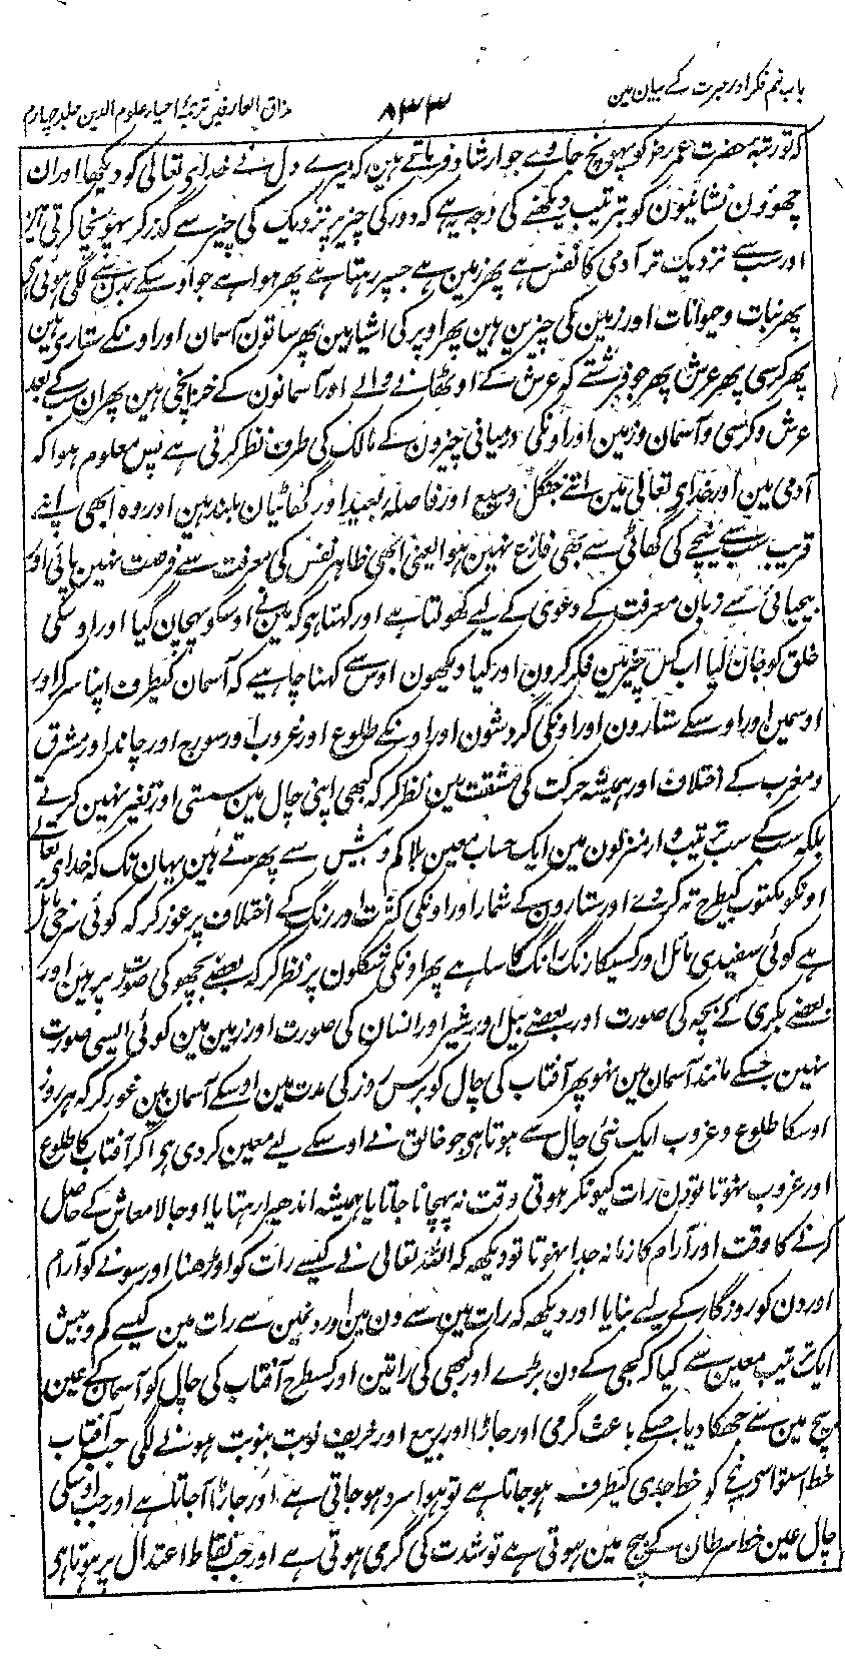 باب نہم فکر اور عبرت کے بیان مین
۸۳۳
مذاق العارفین ترجمۂ احیاء علوم الدین جلد چہارم
کہ تو رتبہ حضرت عمر رض کو پہونچ جاوے جو ارشاد فرماتے ہین کہ میرے دل نے خدای تعالی کو دیکھا اور ان
چھوون نشانیون کو بترتیب دیکھنے کی وجہ یہ ہے کہ دور کی چیز پر نزدیک کی چیز سے گذر کر پہونچا کرتی ہین
اور سب سے نزدیک تر آدمی کا نفس ہے پھر زمین ہے جسپر رہتا ہے پھر ہوا ہے جو اوسکے بدن سے لگی ہوئی ہی
پھر نبات و حیوانات اور زمین کی چیزین ہین پھر اوپر کی اشیا ہین پھر ساتون آسمان اور اونکے ستاری ہین
پھر کرسی پھر عرش پھر جو فرشتے کو عرش کے اوٹھانے والے اور آسمانون کے خزانچی ہین پھر ان سب کے بعد
عرش و کرسی و آسمان و زمین اور اونکی درمیانی چیزون کے مالک کی طرف نظر کرنی ہے پس معلوم ہوا کہ
آدمی مین اور خدای تعالی مین اتنے جنگل وسیع اور فاصلہ بعید اور گھاٹیان بلند ہین اور وہ ابھی اپنے
قریب سب سے نیچے کی گھاٹی سے بھی فارغ نہین ہوا یعنی ابھی ظاہر نفس کی معرفت سے فرصت نہین پائی اور
بیحیائی سے زبان معرفت کے دعوی کے لیے کھولتا ہے اور کہتا ہو کہ مین نے اوسکو پہچان گیا اور اوسکی
خلق کو جان لیا اب کس چیز مین فکر کرون اور کیا دیکھون اوس سے کہنا چاہیے کہ آسمان کیطرف اپنا سر کر اور
اوسمین اور اوسکے ستارون اور اونکی گردشون اور اونکے طلوع اور غروب اور سورج اور چاند اور مشرق
و مغرب کے اختلاف اور ہمیشہ حرکت کی مشقت مین نظر کر کہ کبھی اپنی چال مین سستی اور تغیر نہین کرتے
بلکہ سب کے سب ترتیب وار منزلون مین ایک حساب معین بلا کم و بیش سے پھرتے ہین یہان تک کہ خدای تعالے
اونکو مکتوب کیطرح تہ کر دے اور ستارون کے شمار اور اونکی کثرت اور رنگ کے اختلاف پر غور کر کہ کوئی سرخی مائل
ہے کوئی سفیدی مائل اور کسیکا رنگ رانگ کا سا ہے پھر اونکی شکلون پر نظر کر کہ بعضے بچھو کی صورت پر ہین اور
بعضے بکری کے بچہ کی صورت اور بعضے بیل اور شیر اور انسان کی صورت اور زمین مین کوئی ایسی صورت
نہین جسکے مانند آسمان مین نہو پھر آفتاب کی چال کو برس روز کی مدت مین اوسکے آسمان مین غور کر کہ ہر روز
اوسکا طلوع و غروب ایک نئی چال سے ہوتا ہو جو خالق نے اوسکے لیے معین کر دی ہی اگر آفتاب کا طلوع
اور غروب نہوتا تو دن رات کیونکر ہوتی وقت نہ پہچانا جاتا یا ہمیشہ اندھیرا رہتا یا اوجالا معاش کے حاصل
کرنے کا وقت اور آرام کا زمانہ جدا نہوتا تو دیکھ کہ اللہ تعالی نے کیسے رات کو اوڑھنا اور سونے کو آرام
اور دن کو روزگار کے لیے بنایا اور دیکھ کہ رات مین سے دن مین اور دنمین سے رات مین کیسے کم و بیش
ایک ترتیب معین سے کیا کہ کبھی کے دن بڑے اور کبھی کی راتین اور کسطرح آفتاب کی چال کو آسمان کے عین
بیچ مین سے جھکا دیا جسکے باعث گرمی اور جاڑا اور ربیع اور خریف نوبت بنوبت ہونے لگی جب آفتاب
خط استوا سی نیچے کو خط جدی کیطرف ہو جاتا ہے تو ہوا سرد ہو جاتی ہے اور جاڑا آ جاتا ہے اور جب اوسکی
چال عین خط سرطان کے بیچ مین ہوتی ہے تو شدت کی گرمی ہوتی ہے اور جب نقاط اعتدال پر ہوتا ہو